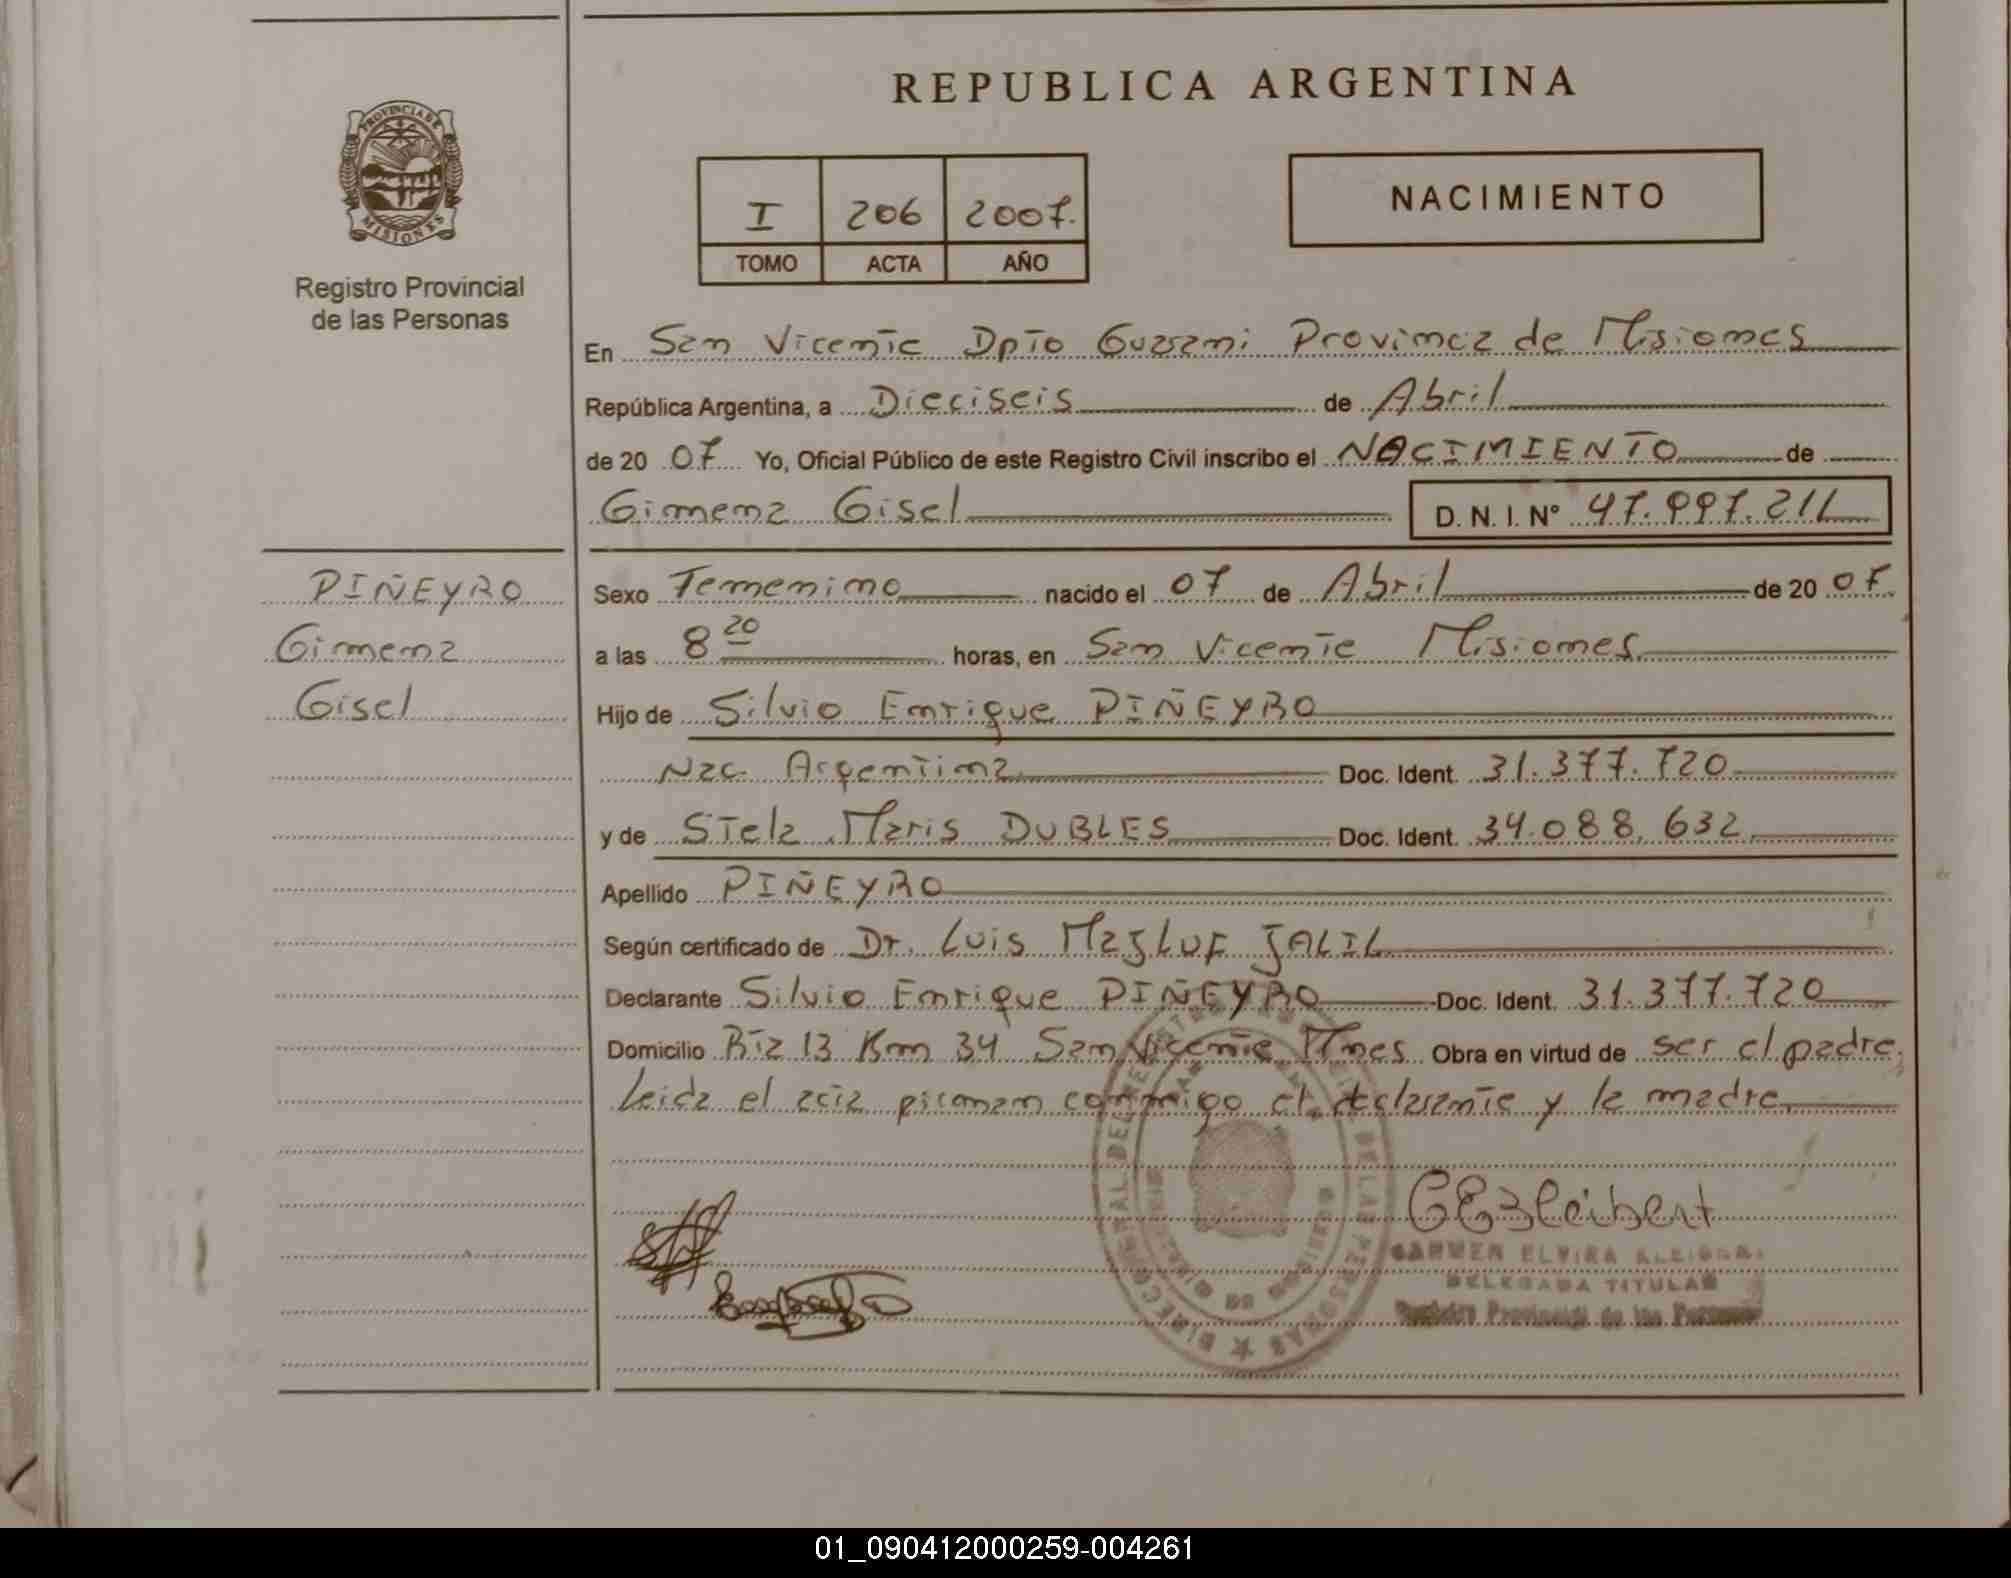 REPUBLICA ARGENTINA
PROVINCIA DE
MISIONES
Registro Provincial
de las Personas
I 206 2007.
TOMO ACTA AÑO
NACIMIENTO
En San Vicente Dpto Guarani Provincia de Misiones
República Argentina, a Dieciseis de Abril
de 20 07 Yo, Oficial Público de este Registro Civil inscribo el NACIMIENTO de
Gimena Gisel D. N. I. Nº 47.997.211
PIÑEYRO
Gimena
Gisel
Sexo Femenino nacido el 07 de Abril de 20 07.
a las 8 20 horas, en San Vicente Misiones
Hijo de Silvio Enrique PIÑEYRO
Nac. Argentina Doc. Ident. 31.377.720
y de Stela Maris DUBLES Doc. Ident. 34.088.632
Apellido PIÑEYRO
Según certificado de Dr. Luis JALIL
Declarante Silvio Enrique PIÑEYRO Doc. Ident. 31.377.720
Domicilio Rta 13 Km 34 San Vicente Mnes Obra en virtud de ser el padre
Leida el acta conmigo el declarante y la madre
CARMEN ELVIRA
DELEGADA TITULAR
Registro Provincial de las Personas
01_090412000259-004261